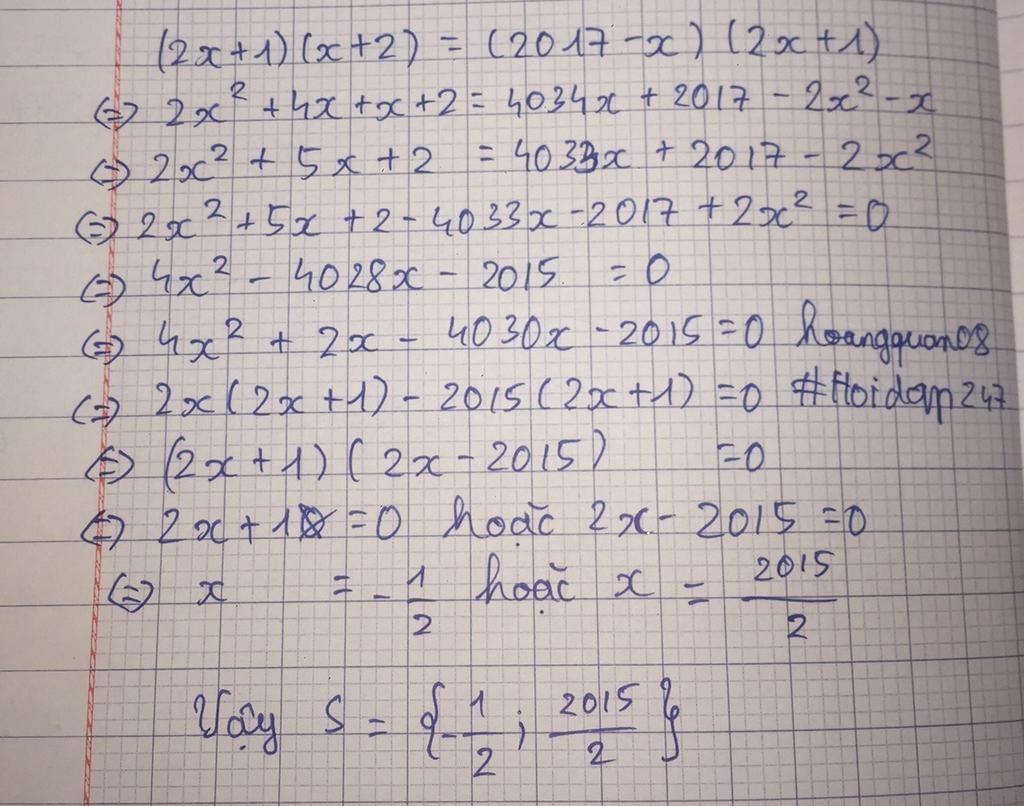 (2x+1)(x+2) = (2017-x)(2x+1)
(=) 2x² + 4x + x + 2 = 4034x + 2017 - 2x² - x
(=) 2x² + 5x + 2 = 4033x + 2017 - 2x²
(=) 2x² + 5x + 2 - 4033x - 2017 + 2x² = 0
(=) 4x² - 4028x - 2015 = 0
(=) 4x² + 2x - 4030x - 2015 = 0 hoangquan08
(=) 2x(2x+1) - 2015(2x+1) = 0 #Hoidap247
(=) (2x+1)(2x-2015) = 0
(=) 2x+1 = 0 hoặc 2x - 2015 = 0
(=) x = -1/2 hoặc x = 2015/2
Vậy S = {-1/2; 2015/2}